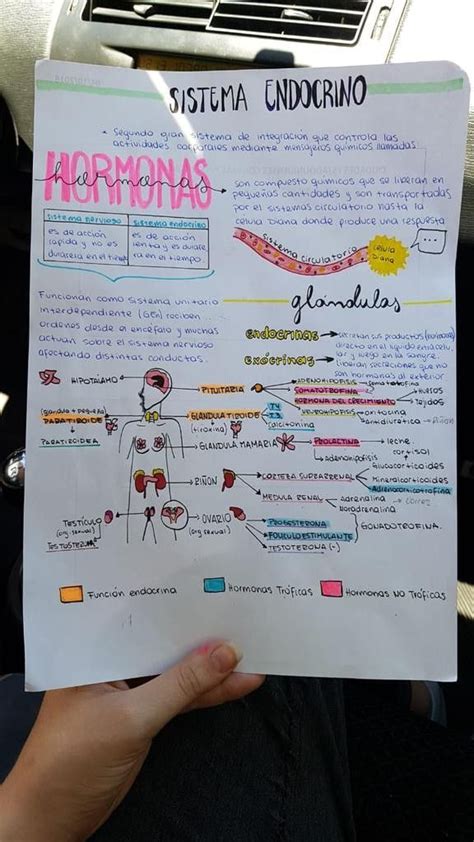 SISTEMA ENDOCRINO
• Segundo gran sistema de integración que controla las
actividades corporales mediante mensajeros químicos llamadas
HORMONAS
hormonas
son compuesto químicos que se liberan en
pequeñas cantidades y son transportadas
por el sistema circulatorio hasta la
celula Diana donde produce una respuesta
sistema nervioso
es de acción
rapida y no es
duradera en el tiempo
sistema endocrino
es de acción
lenta y es durade
ra en el tiempo.
sistema circulatorio
celula
Diana
...
Funcionan como sistema unitario
interdependiente (Gen) reciben
ordenes desde el encéfalo y muchas
actuan sobre el sistema nervioso
afectando distintas conductas.
glándulas
endocrinas → secretan sus productos
directo en el liquido
lar y luego en la sangre.
exócrinas → liberan secreciones que no
son hormonas al exterior
HIPOTÁLAMO
PITUITARIA
ADENOHIPOFISIS
somatotrofina
SOMATOTROFINA
HORMONA DEL CRECIMIENTO
HUESOS
Tejidos
(glandula + pequeña)
PARATIROIDE
PARATIROIDEA
GLANDULA TIROIDE
(tiroxina)
T4
T3
calcitonina
NEUROHIPOFISIS
oxitocina
antidiuretica
Riñon
GLANDULA MAMARIA
PROLACTINA
leche
Adenohipofisis
cortisol
RIÑON
CORTEZA SUPRARRENAL
Glucocorticoides
Mineralcorticoides
Adrenocorticotrofina
MEDULA RENAL
adrenalina
Noradrenalina
TESTÍCULO
(org. sexual)
TESTOSTERONA
OVARIO
(org. sexual)
PROGESTERONA
FOLICULOESTIMULANTE
TESTOTERONA (-)
GONADOTROFINA.
Función endocrina
Hormonas Tróficas
Hormonas NO Tróficas